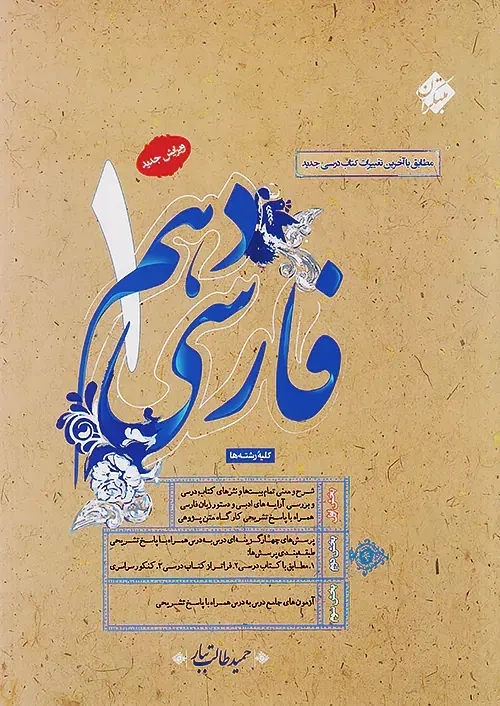 مبتکران
مطابق با آخرین تغییرات کتاب درسی جدید
ویرایش جدید
فارسی دهم
۱
کلیه رشته‌ها
بخش اول
شرح و معنی تمام بیت‌ها و نثرهای کتاب درسی
و بررسی آرایه های ادبی و دستور زبان فارسی
همراه با پاسخ تشریحی کارگاه متن پژوهی
بخش دوم
پرسش‌های چهارگزینه‌ای درس به درس همراه با پاسخ تشریحی
طبقه‌بندی پرسش‌ها:
۱. مطابق با کتاب درسی ۲. فراتر از کتاب درسی ۳. کنکور سراسری
بخش سوم
آزمون های جامع درس به درس همراه با پاسخ تشریحی
حمید طالب تبار